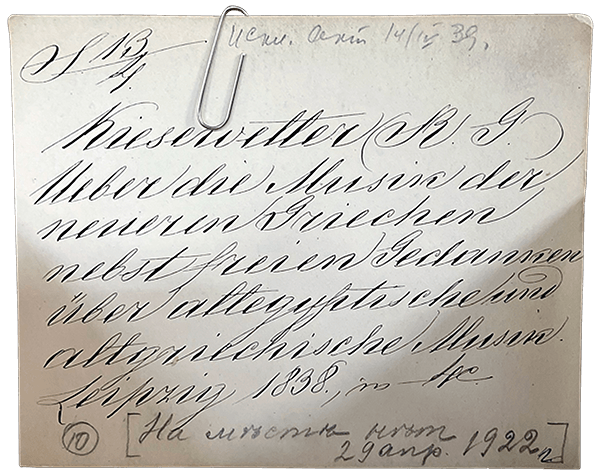 S 13/4.
Искл. Акт 14/IV 39.
Kiesewetter (R. G.)
Ueber die Musik der
neueren Griechen
nebst freien Gedanken
über altegyptische und
altgriechische Musik.
Leipzig 1838., in - 4°
10 [На мѣстѣ нѣт
29 апр. 1922 г.]